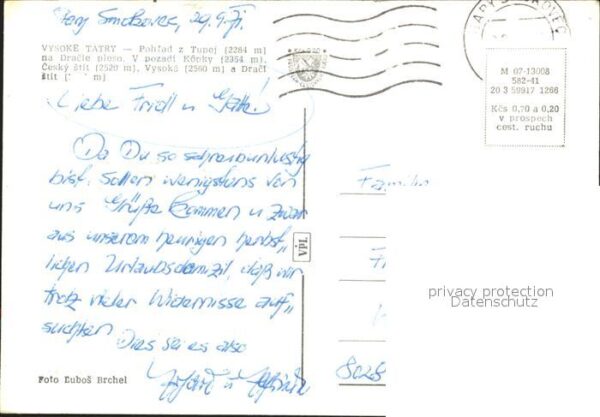 Stary Smokovec, 29.9.71.
VYSOKÉ TATRY — Pohľad z Tupej (2284 m)
na Dračie pleso. V pozadí Kôpky (2354 m),
Český štít (2520 m), Vysoká (2560 m) a Dračí
štít (
Liebe Fridl u
Da Du so schreibunlustig
bist, sollen wenigstens von
uns Grüße kommen u zwar
aus unserem heurigen herbst„
lichen Urlaubsdomizil, daß wir
trotz vieler Widernisse auf„
suchten
Dies sei es also
u
Foto Ľuboš Brchel
VPL
M 07-13008
582-41
20 3 59917 1266
Kčs 0,70 a 0,20
v prospech
cest. ruchu
Familie
8028
privacy protection
Datenschutz